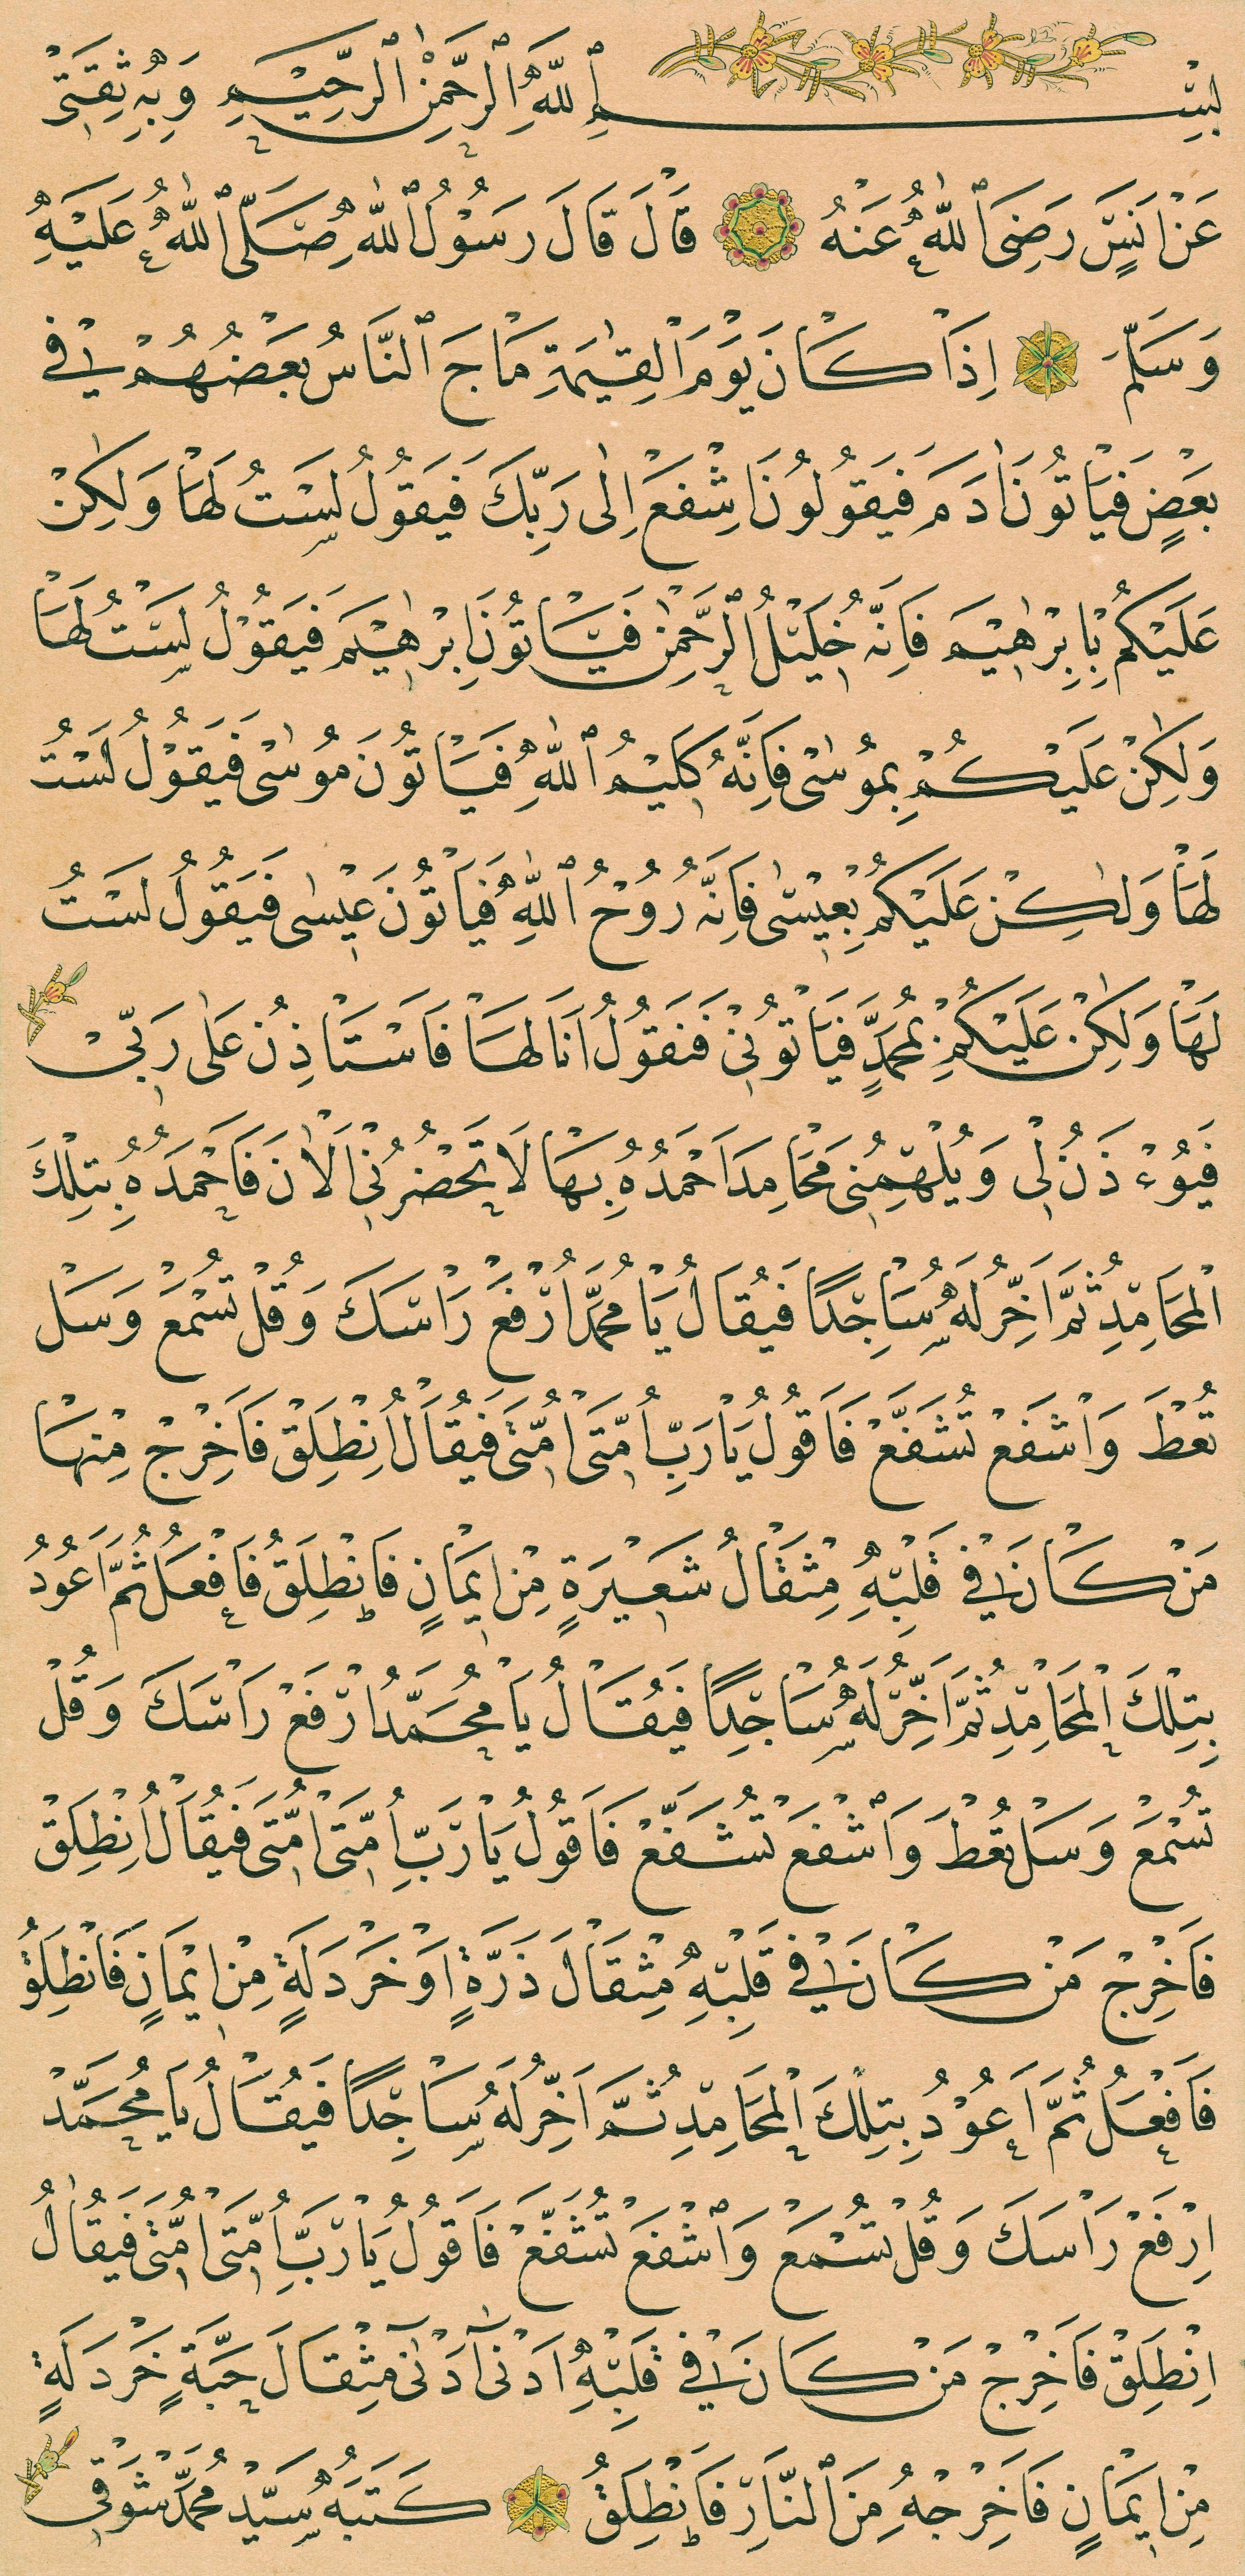 بِسْمِ اللهِ الرَّحْمٰنِ الرَّحِيْمِ وَبِهٖ ثِقَتِيْ
عَنْ اَنَسٍ رَضِيَ اللهُ عَنْهُ قَالَ قَالَ رَسُوْلُ اللهِ صَلَّى اللهُ عَلَيْهِ
وَسَلَّمَ اِذَا كَانَ يَوْمَ الْقِيٰمَةِ مَاجَ النَّاسُ بَعْضُهُمْ فِيْ
بَعْضٍ فَيَاْتُوْنَ اٰدَمَ فَيَقُوْلُوْنَ اِشْفَعْ اِلٰى رَبِّكَ فَيَقُوْلُ لَسْتُ لَهَا وَلٰكِنْ
عَلَيْكُمْ بِاِبْرٰهِيْمَ فَاِنَّهُ خَلِيْلُ الرَّحْمٰنِ فَيَاْتُوْنَ اِبْرٰهِيْمَ فَيَقُوْلُ لَسْتُ لَهَا
وَلٰكِنْ عَلَيْكُمْ بِمُوْسٰى فَاِنَّهُ كَلِيْمُ اللهِ فَيَاْتُوْنَ مُوْسٰى فَيَقُوْلُ لَسْتُ
لَهَا وَلٰكِنْ عَلَيْكُمْ بِعِيْسٰى فَاِنَّهُ رُوْحُ اللهِ فَيَاْتُوْنَ عِيْسٰى فَيَقُوْلُ لَسْتُ
لَهَا وَلٰكِنْ عَلَيْكُمْ بِمُحَمَّدٍ فَيَاْتُوْنِيْ فَنَقُوْلُ اَنَا لَهَا فَاَسْتَاْذِنُ عَلٰى رَبِّيْ
فَيُوْءْذَنُ لِيْ وَيُلْهِمُنِيْ مَحَامِدَ اَحْمَدُهُ بِهَا لَا تَحْضُرُنِي الْاٰنَ فَاَحْمَدُهُ بِتِلْكَ
الْمَحَامِدِ ثُمَّ اَخِرُّ لَهُ سَاجِدًا فَيُقَالُ يَا مُحَمَّدُ ارْفَعْ رَاْسَكَ وَقُلْ تُسْمَعْ وَسَلْ
تُعْطَ وَاشْفَعْ تُشَفَّعْ فَاَقُوْلُ يَا رَبِّ اُمَّتِيْ اُمَّتِيْ فَيُقَالُ اِنْطَلِقْ فَاَخْرِجْ مِنْهَا
مَنْ كَانَ فِيْ قَلْبِهِ مِثْقَالُ شَعِيْرَةٍ مِنْ اِيْمَانٍ فَانْطَلِقُ فَاَفْعَلُ ثُمَّ اَعُوْدُ
بِتِلْكَ الْمَحَامِدِ ثُمَّ اَخِرُّ لَهُ سَاجِدًا فَيُقَالُ يَا مُحَمَّدُ ارْفَعْ رَاْسَكَ وَقُلْ
تُسْمَعْ وَسَلْ تُعْطَ وَاشْفَعْ تُشَفَّعْ فَاَقُوْلُ يَا رَبِّ اُمَّتِيْ اُمَّتِيْ فَيُقَالُ اِنْطَلِقْ
فَاَخْرِجْ مَنْ كَانَ فِيْ قَلْبِهِ مِثْقَالَ ذَرَّةٍ اَوْ خَرْدَلَةٍ مِنْ اِيْمَانٍ فَانْطَلِقُ
فَاَفْعَلُ ثُمَّ اَعُوْدُ بِتِلْكَ الْمَحَامِدِ ثُمَّ اَخِرُّ لَهُ سَاجِدًا فَيُقَالُ يَا مُحَمَّدْ
اِرْفَعْ رَاْسَكَ وَقُلْ تُسْمَعْ وَاشْفَعْ تُشَفَّعْ فَاَقُوْلُ يَا رَبِّ اُمَّتِيْ اُمَّتِيْ فَيُقَالُ
اِنْطَلِقْ فَاَخْرِجْ مَنْ كَانَ فِيْ قَلْبِهِ اَدْنٰى اَدْنٰى مِثْقَالَ حَبَّةٍ خَرْدَلَةٍ
مِنْ اِيْمَانٍ فَاَخْرِجْهُ مِنَ النَّارِ فَانْطَلِقُ كَتَبَهُ سَيِّدْ مُحَمَّدْ شَوْقِي